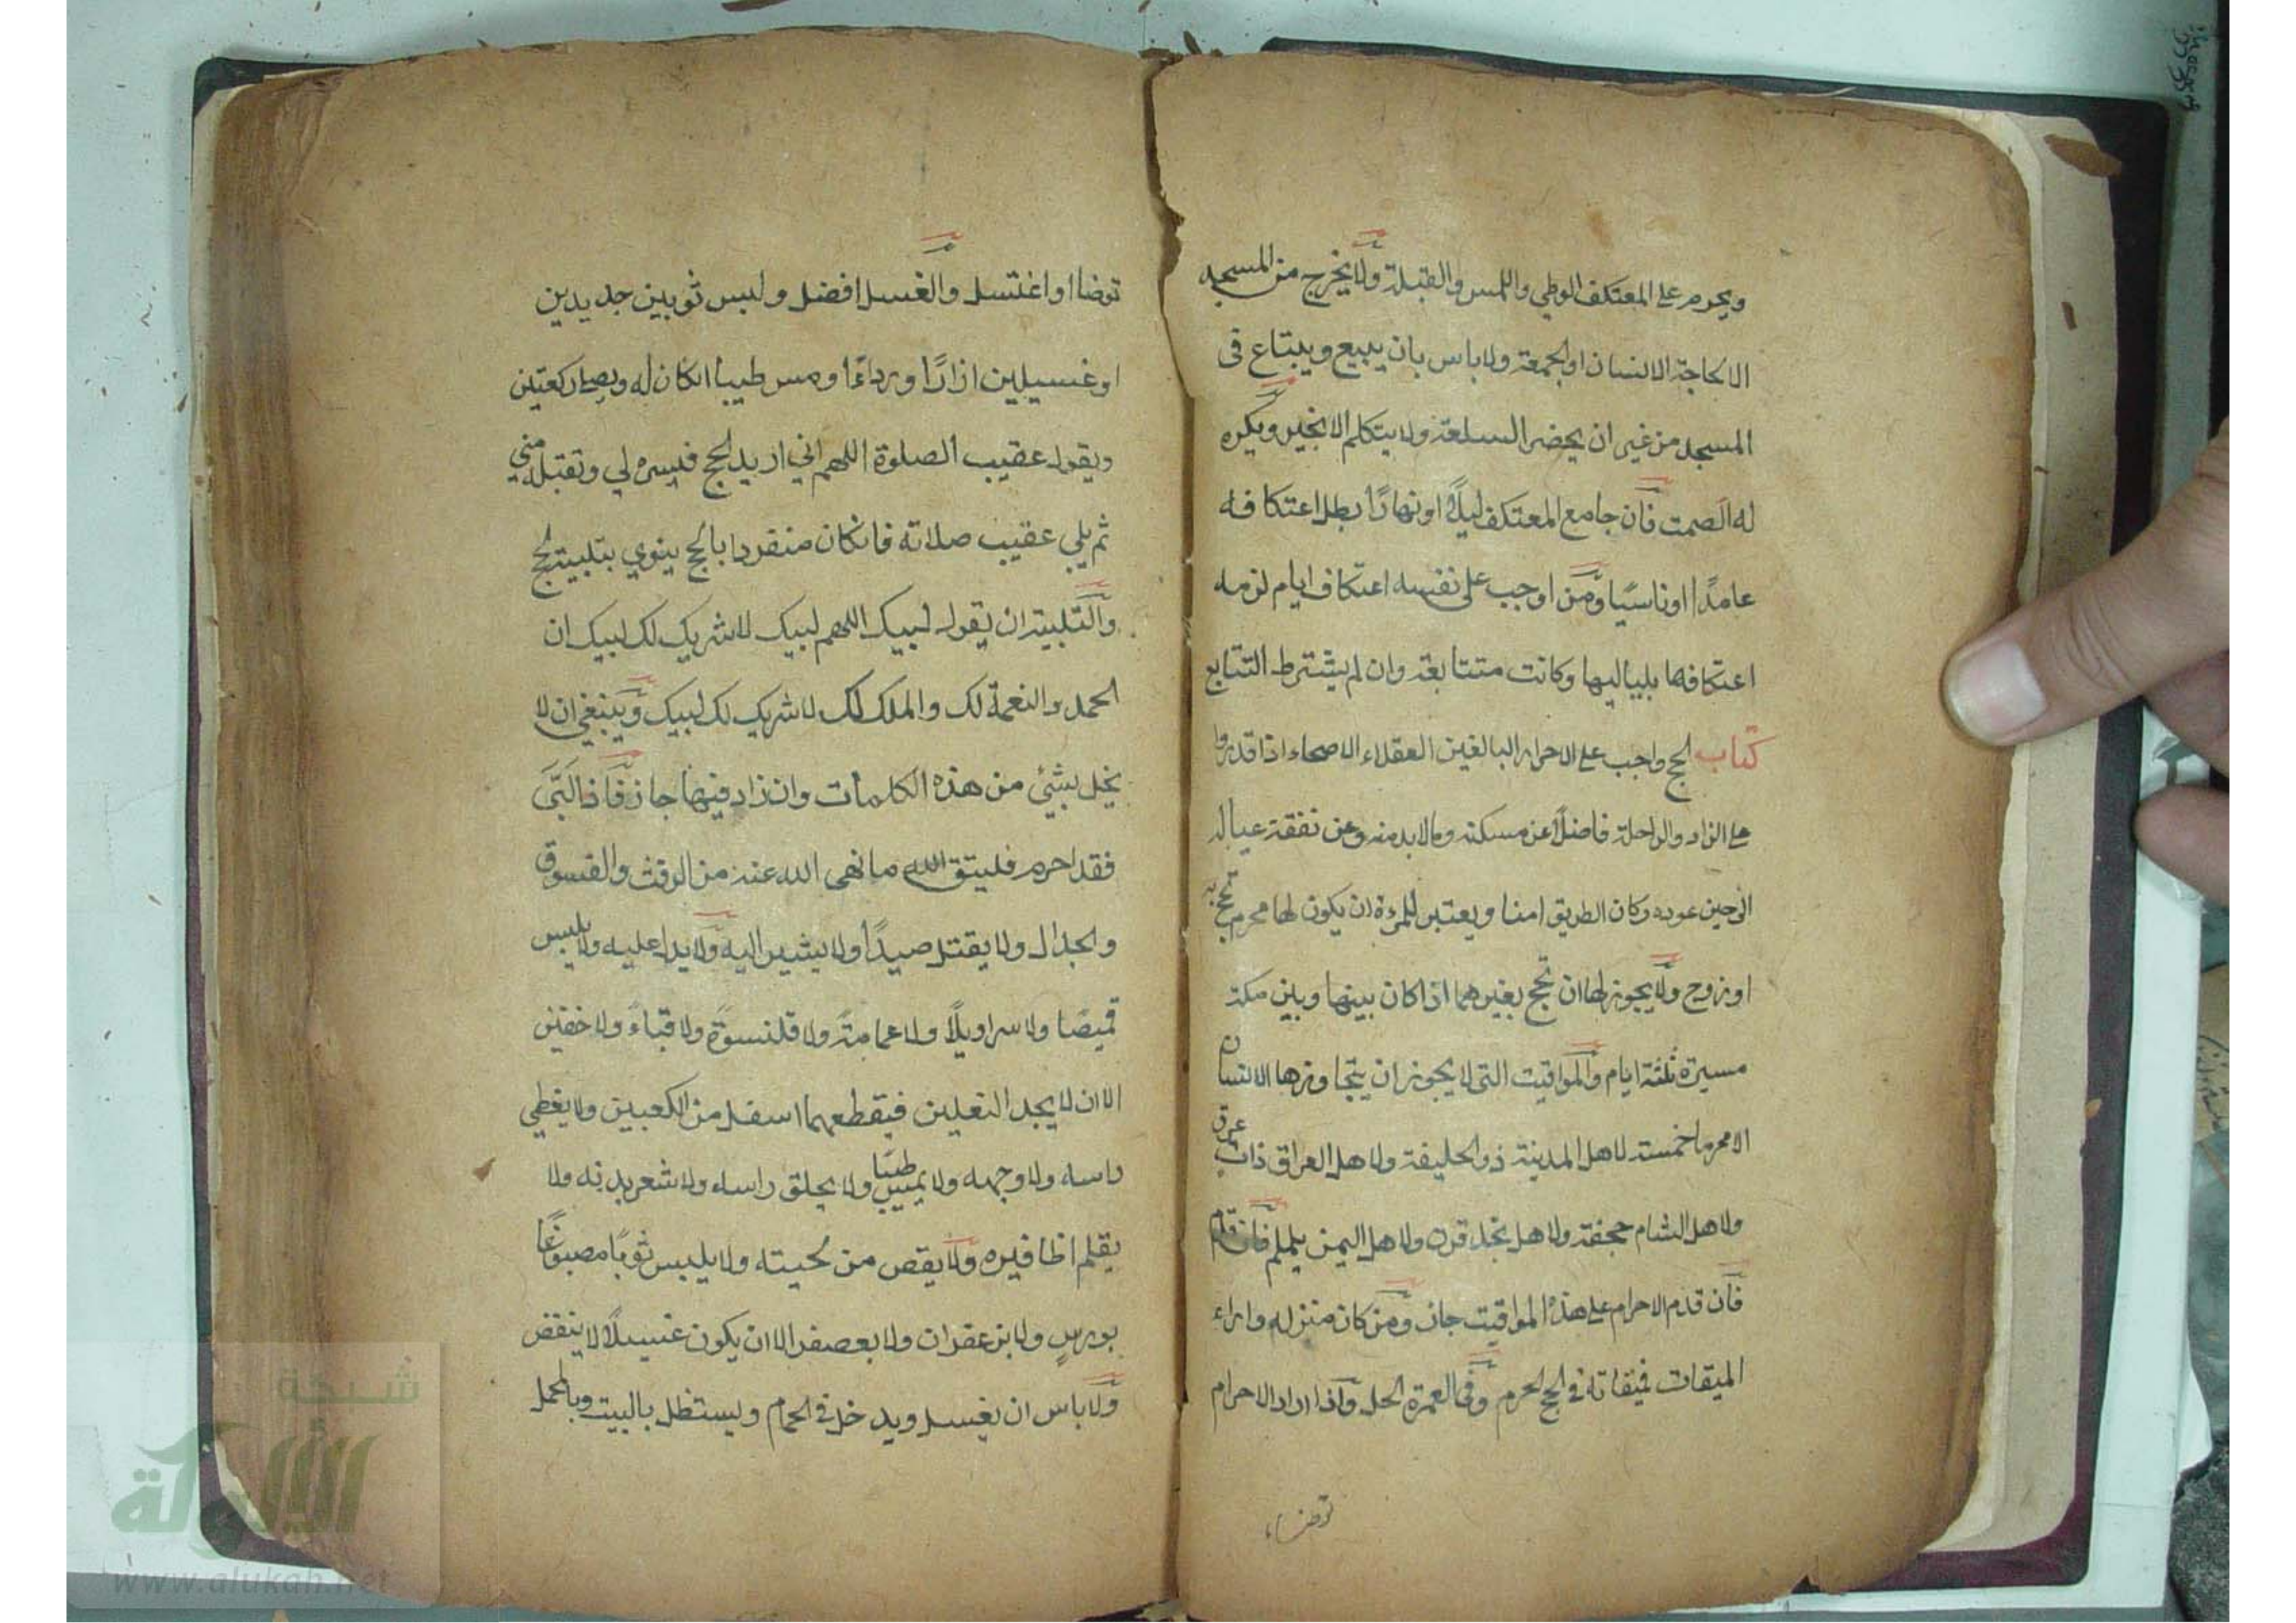 ويحرم على المعتكف الوطي واللمس والقبلة ولا يخرج من المسجد
الا لحاجة الانسان او الجمعة ولا باس بان يبيع ويبتاع في
المسجد من غير ان يحضر السلعة ولا يتكلم الا بخير ويكره
له الصمت فان جامع المعتكف ليلًا او نهارًا بطل اعتكافه
عامدًا او ناسيًا ومن اوجب على نفسه اعتكاف ايام لزمه
اعتكافها بلياليها وكانت متتابعة وان لم يشترط التتابع
كتاب الحج واجب على الاحرار البالغين العقلاء الاصحاء اذا قدروا
على الزاد والراحلة فاضلًا عن مسكنه وما لابد منه وعن نفقة عياله
الى حين عوده وكان الطريق امنا ويعتبر للمرءة ان يكون لها محرم تحج به
او زوج ولا يجوز لها ان تحج بغيرهما اذا كان بينها وبين مكة
مسيرة ثلثة ايام والمواقيت التي لا يجوز ان يتجاوزها الانسان
الا محرما خمسة لاهل المدينة ذو الحليفة ولاهل العراق ذات عرق
ولاهل الشام جحفة ولاهل نجد قرن ولاهل اليمن يلملم فان قدم
فان قدم الاحرام على هذه المواقيت جاز ومن كان منزله وراء
الميقات فميقاته في الحج الحرم وفي العمرة الحل واذا اراد الاحرام
توضاء
توضاا او اغتسل والغسل افضل ولبس ثوبين جديدين
او غسيلين ازارًا ورداءًا ومس طيبا انكان له ويصلي ركعتين
ويقول عقيب الصلوة اللهم اني اريد الحج فيسره لي وتقبله مني
ثم يلبي عقيب صلاته فانكان منفردا بالحج ينوي بتلبيته الحج
والتلبية ان يقول لبيك اللهم لبيك لا شريك لك لبيك ان
الحمد والنعمة لك والملك لك لا شريك لك لبيك وينبغي ان لا
يخل بشئ من هذه الكلمات وان زاد فيها جاز فاذا لبَّى
فقد احرم فليتق الله ما نهى الله عنه من الرفث والفسوق
والجدال ولا يقتل صيدًا ولا يشير اليه ولا يدل عليه ولا يلبس
قميصًا ولا سراويلًا ولا عمامةً ولا قلنسوةً ولا قباءً ولا خفين
الا ان لا يجد النعلين فيقطعهما اسفل من الكعبين ولا يغطي
راسه ولا وجهه ولا يمس طيبًا ولا يحلق راسه ولا شعر بدنه ولا
يقلم اظافيره ولا يقص من لحيته ولا يلبس ثوبًا مصبوغًا
بورسٍ ولا بزعفران ولا بعصفر الا ان يكون غسيلًا لا ينقض
ولا باس ان يغسل ويدخل في الحمام ويستظل بالبيت وبالمحمل
شبكة
الألوكة
www.alukah.net